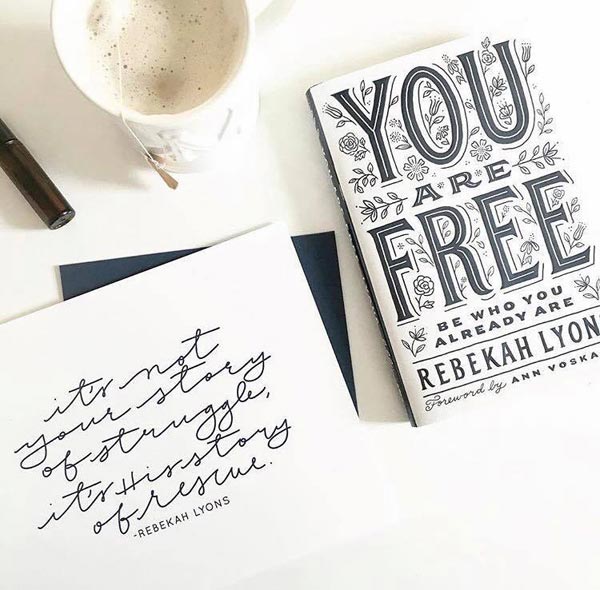 YOU
ARE
FREE
BE WHO YOU
ALREADY ARE
REBEKAH LYON
Foreword by ANN VOSKA
it's not
your story
of struggle,
it's His story
of rescue.
-REBEKAH LYONS